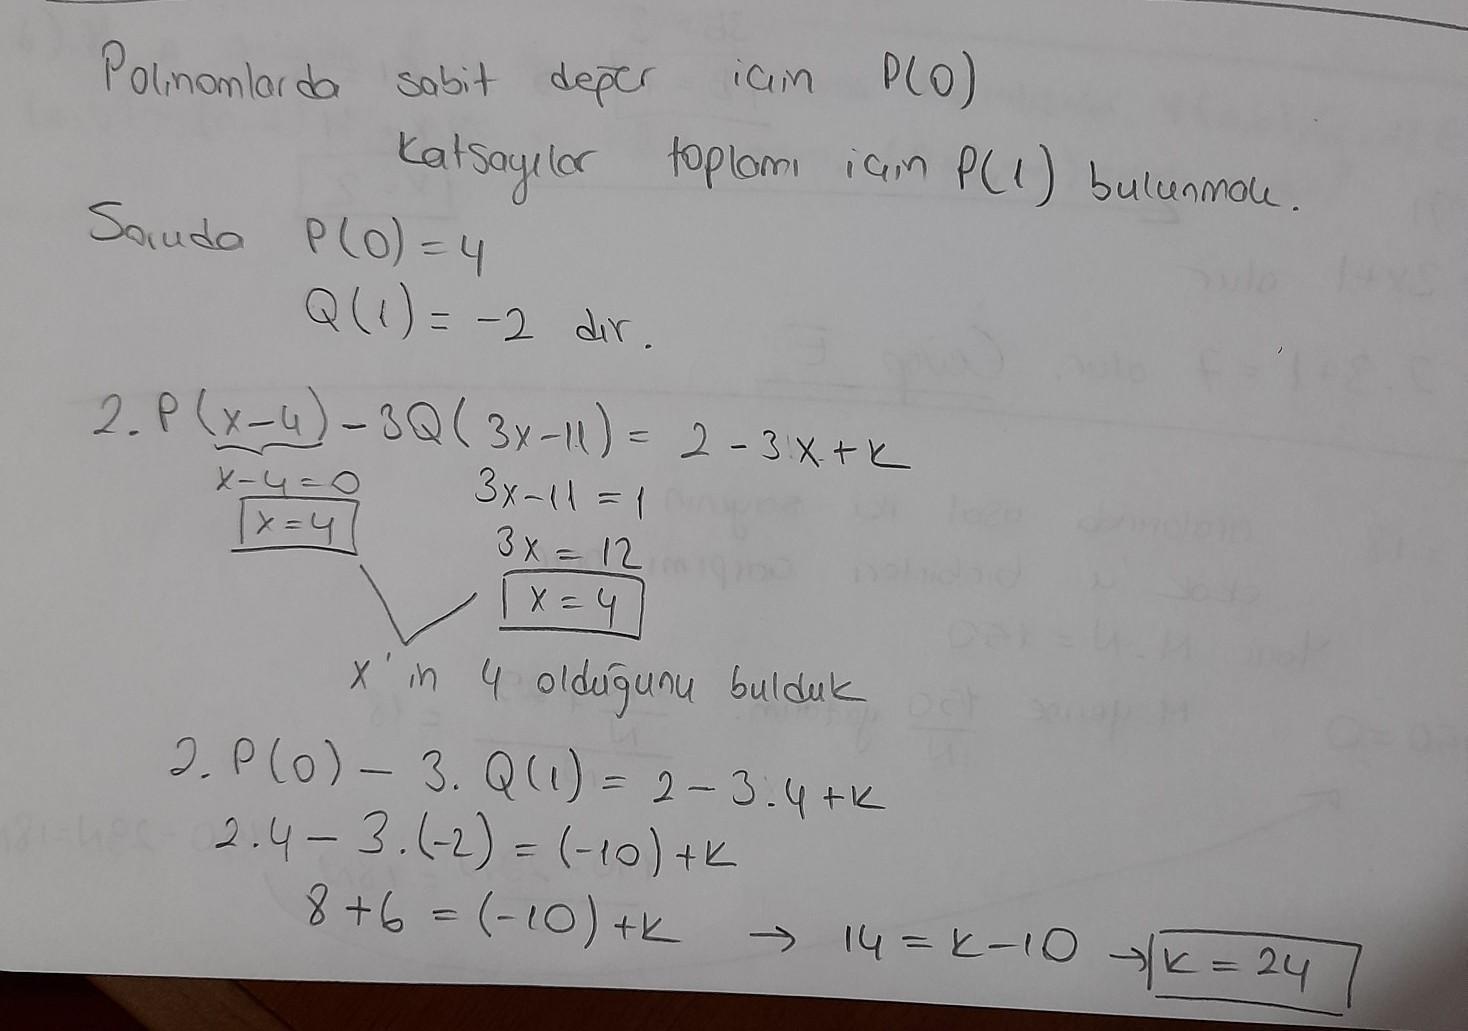 Polinomlarda sabit değer için P(0)
Katsayılar toplamı için P(1) bulunmalı.
Soruda P(0) = 4
Q(1) = -2 dır.
2.P(x-4) - 3Q(3x-11) = 2 - 3x + k
x-4=0 3x-11 = 1
x=4 3x = 12
x = 4
x'in 4 olduğunu bulduk
2.P(0) - 3.Q(1) = 2 - 3.4 + k
2.4 - 3.(-2) = (-10) + k
8 + 6 = (-10) + k → 14 = k - 10 → k = 24